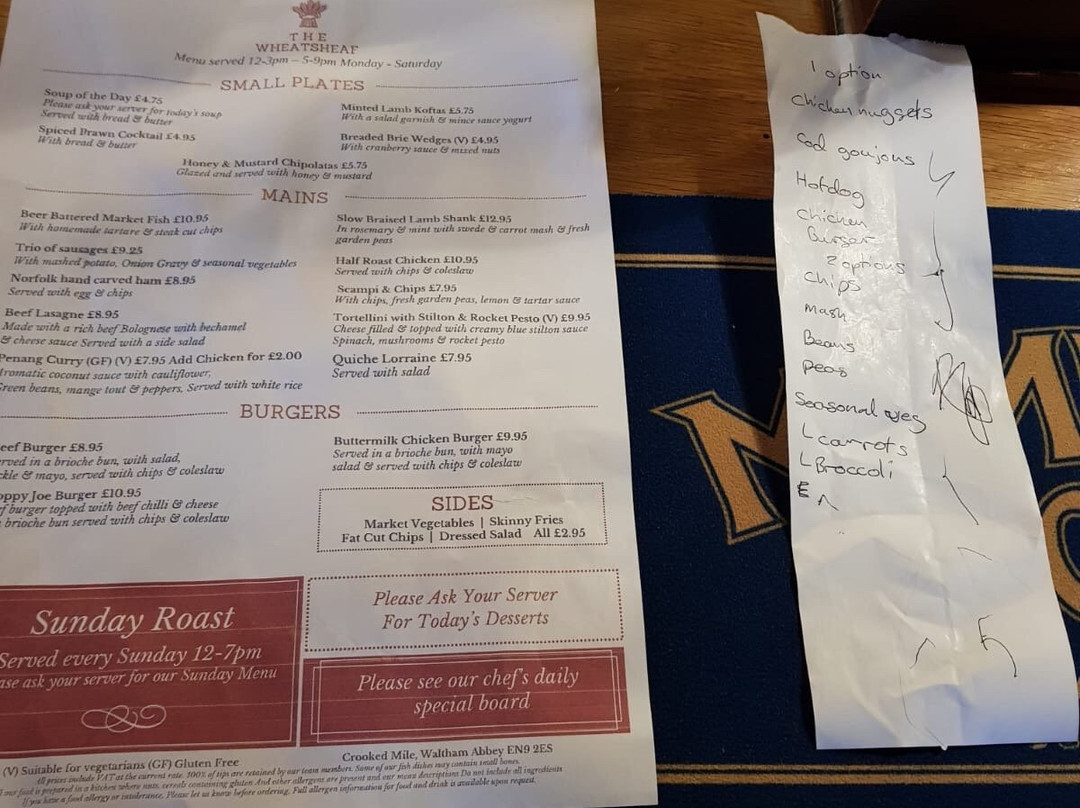 THE
WHEATSHEAF
Menu served 12-3pm – 5-9pm Monday - Saturday
SMALL PLATES
Soup of the Day £4.75
Please ask your server for today's soup
Served with bread & butter
Spiced Prawn Cocktail £4.95
With bread & butter
Minted Lamb Koftas £5.75
With a salad garnish & mince sauce yogurt
Breaded Brie Wedges (V) £4.95
With cranberry sauce & mixed nuts
Honey & Mustard Chipolatas £5.75
Glazed and served with honey & mustard
MAINS
Beer Battered Market Fish £10.95
With homemade tartare & steak cut chips
Trio of sausages £9.25
With mashed potato, Onion Gravy & seasonal vegetables
Norfolk hand carved ham £8.95
Served with egg & chips
Beef Lasagne £8.95
Made with a rich beef Bolognese with bechamel
& cheese sauce Served with a side salad
Penang Curry (GF) (V) £7.95 Add Chicken for £2.00
Aromatic coconut sauce with cauliflower,
Green beans, mange tout & peppers, Served with white rice
Slow Braised Lamb Shank £12.95
In rosemary & mint with swede & carrot mash & fresh
garden peas
Half Roast Chicken £10.95
Served with chips & coleslaw
Scampi & Chips £7.95
With chips, fresh garden peas, lemon & tartar sauce
Tortellini with Stilton & Rocket Pesto (V) £9.95
Cheese filled & topped with creamy blue stilton sauce
Spinach, mushrooms & rocket pesto
Quiche Lorraine £7.95
Served with salad
BURGERS
eef Burger £8.95
rved in a brioche bun, with salad,
ckle & mayo, served with chips & coleslaw
oppy Joe Burger £10.95
ef burger topped with beef chilli & cheese
brioche bun served with chips & coleslaw
Buttermilk Chicken Burger £9.95
Served in a brioche bun, with mayo
salad & served with chips & coleslaw
SIDES
Market Vegetables | Skinny Fries
Fat Cut Chips | Dressed Salad All £2.95
Sunday Roast
Served every Sunday 12-7pm
ase ask your server for our Sunday Menu
Please Ask Your Server
For Today's Desserts
Please see our chef's daily
special board
(V) Suitable for vegetarians (GF) Gluten Free
Crooked Mile, Waltham Abbey EN9 2ES
All prices include VAT at the current rate. 100% of tips are retained by our team members. Some of our fish dishes may contain small bones.
ll our food is prepared in a kitchen where nuts, cereals containing gluten And other allergens are present and our menu descriptions Do not include all ingredients
If you have a food allergy or intolerance, Please let us know before ordering, Full allergen information for food and drink is available upon request.
1 option
chicken nuggets
Cod goujons
Hotdog
Chicken
Burger
2 options
Chips
Mash
Beans
Peas
Seasonal
carrots
Broccoli